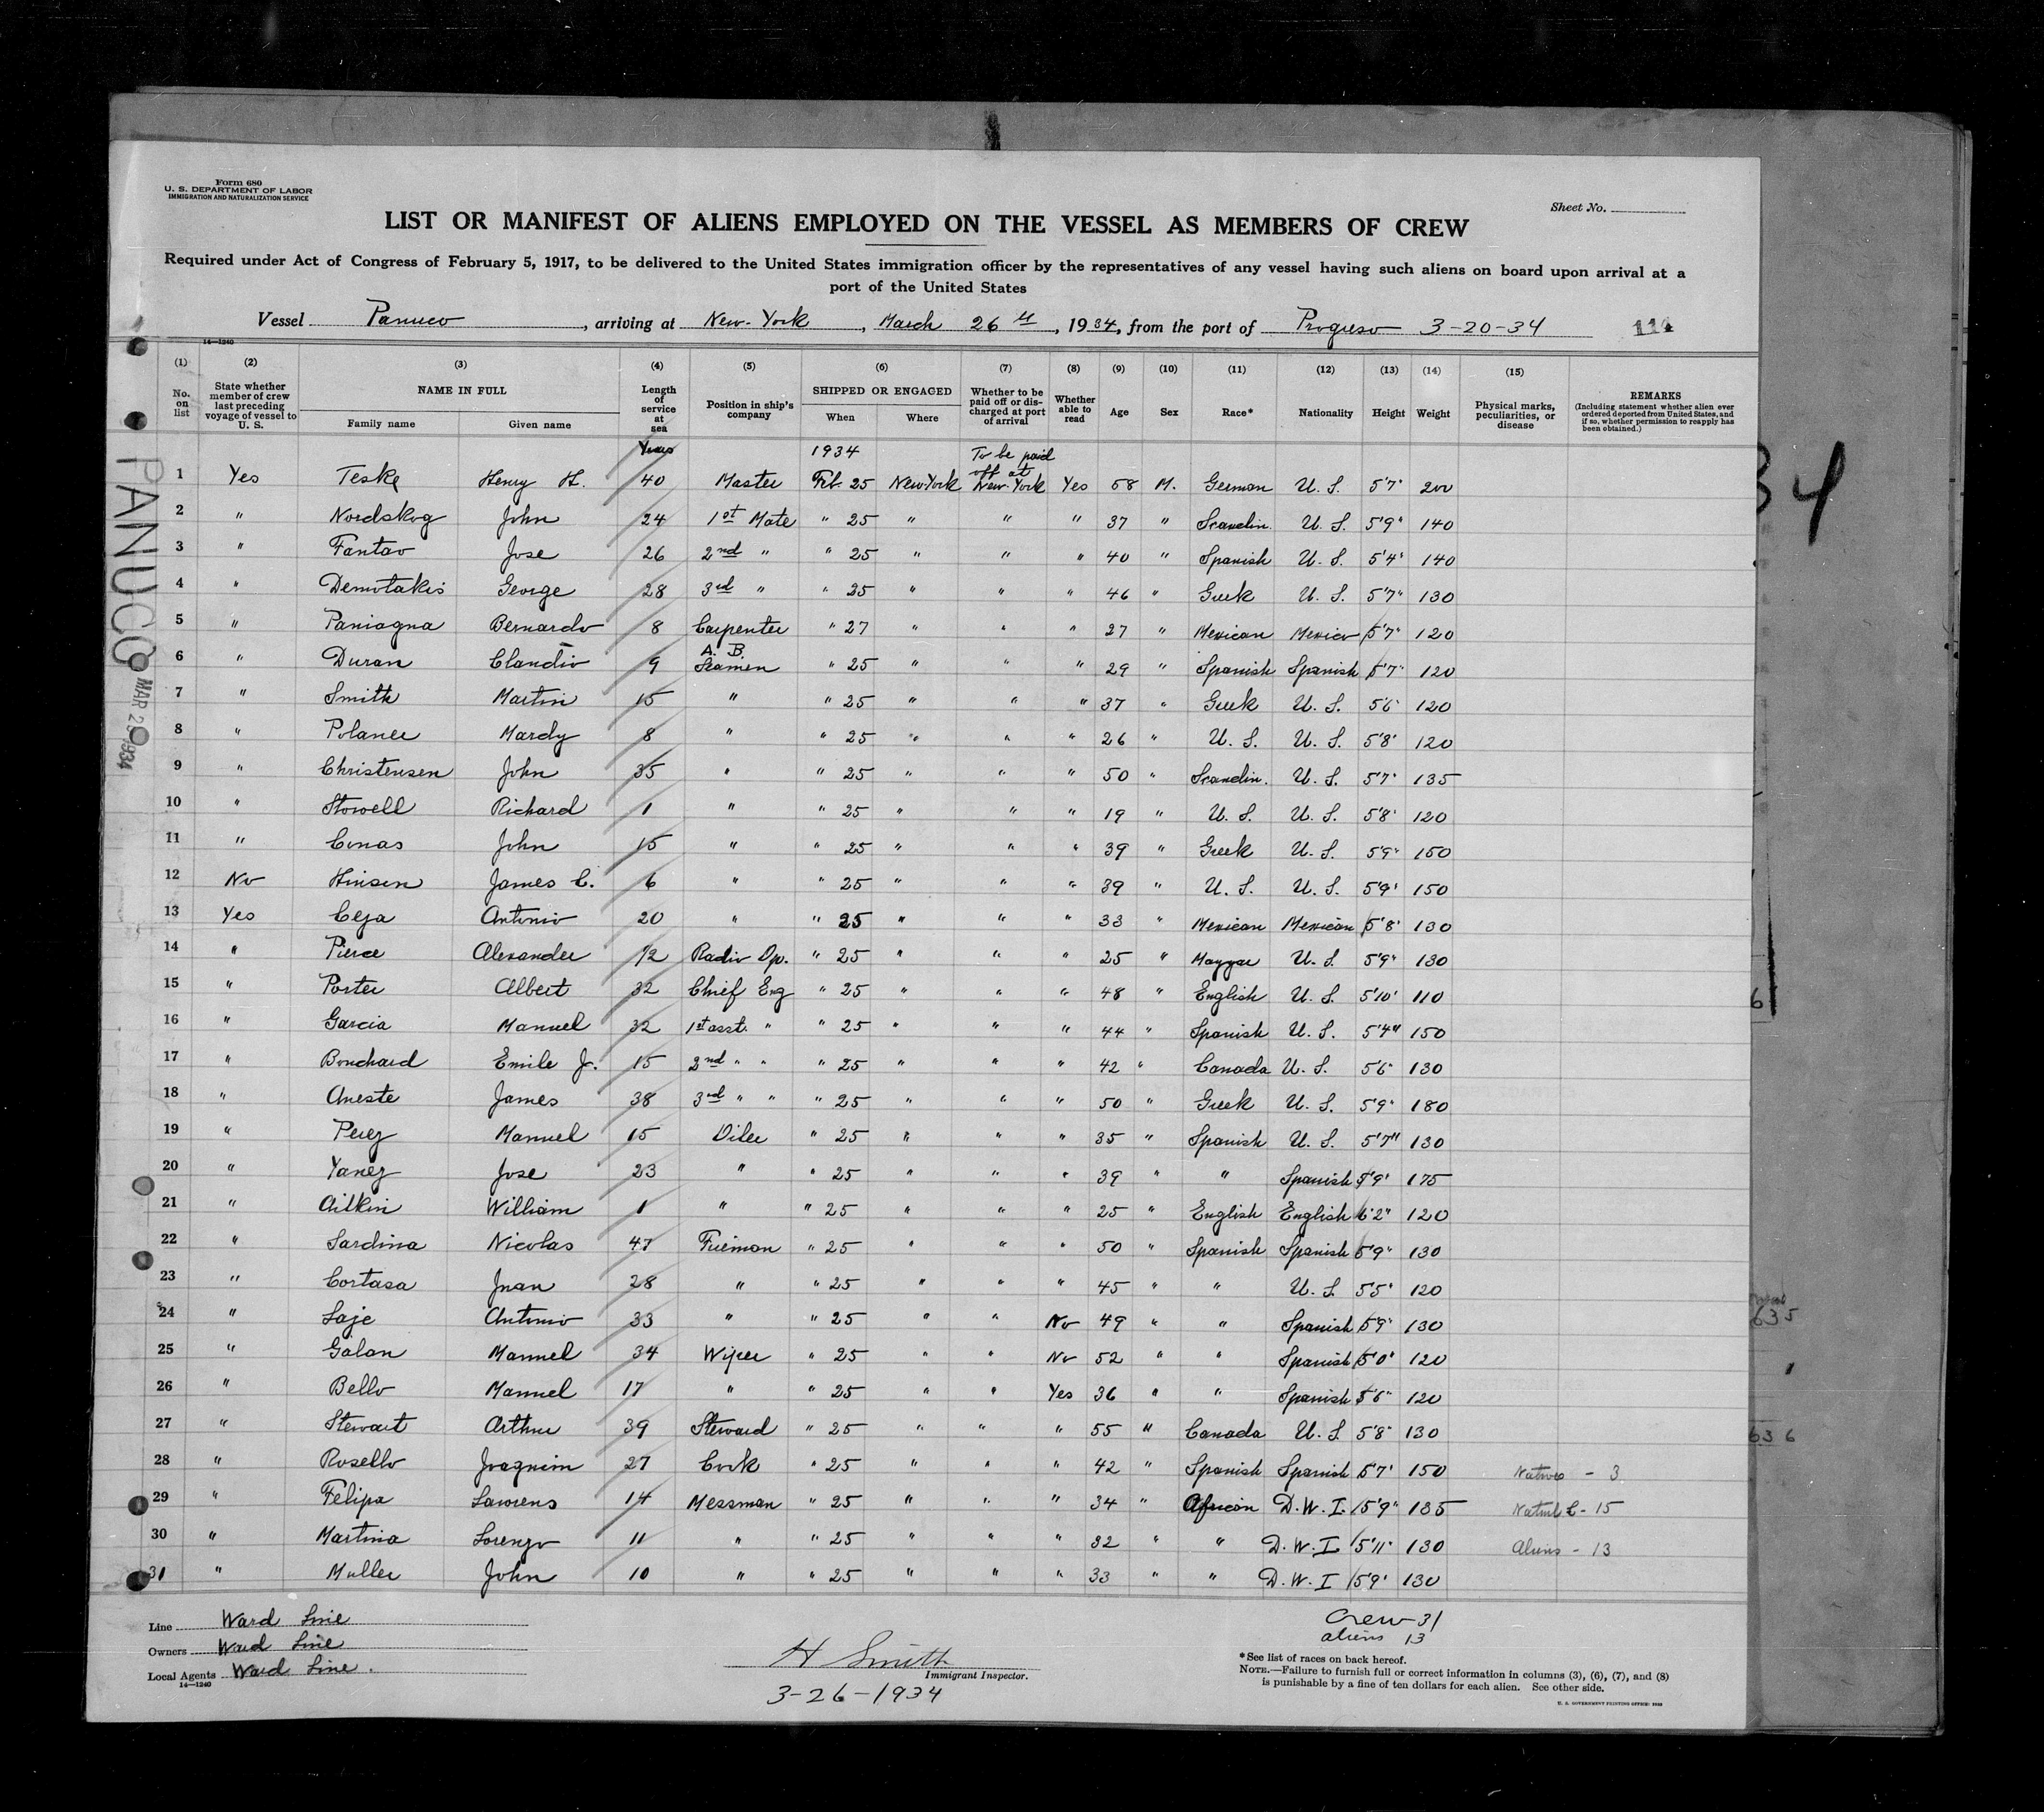 Form 680
U. S. DEPARTMENT OF LABOR
IMMIGRATION AND NATURALIZATION SERVICE
Sheet No.
LIST OR MANIFEST OF ALIENS EMPLOYED ON THE VESSEL AS MEMBERS OF CREW
Required under Act of Congress of February 5, 1917, to be delivered to the United States immigration officer by the representatives of any vessel having such aliens on board upon arrival at a
port of the United States
Vessel Panuco, arriving at New York, March 26th, 1934, from the port of Progreso 3-20-34
14—1240
(1) (2) (3) (4) (5) (6) (7) (8) (9) (10) (11) (12) (13) (14) (15)
No. on list State whether member of crew last preceding voyage of vessel to U. S. NAME IN FULL Family name Given name Length of service at sea Position in ship's company SHIPPED OR ENGAGED When Where Whether to be paid off or discharged at port of arrival Whether able to read Age Sex Race* Nationality Height Weight Physical marks, peculiarities, or disease REMARKS (Including statement whether alien ever ordered deported from United States, and if so, whether permission to reapply has been obtained.)
Years 1934 To be paid off at
1 Yes Teske Henry H. 40 Master Feb. 25 New York New York Yes 58 M. German U. S. 5'7" 200
2 " Nordskog John 24 1st Mate " 25 " " " 37 " Scandin. U. S. 5'9" 140
3 " Fantao Jose 26 2nd " " 25 " " " 40 " Spanish U. S. 5'4" 140
4 " Demotakis George 28 3rd " " 25 " " " 46 " Greek U. S. 5'7" 130
5 " Paniagna Bernardo 8 Carpenter " 27 " " " 27 " Mexican Mexico 5'7" 120
6 " Duran Claudio 9 A. B. Seamen " 25 " " " 29 " Spanish Spanish 5'7" 120
7 " Smith Martin 15 " " 25 " " " 37 " Greek U. S. 5'6" 120
8 " Polanee Mardy 8 " " 25 " " " 26 " U. S. U. S. 5'8" 120
9 " Christensen John 35 " " 25 " " " 50 " Scandin. U. S. 5'7" 135
10 " Stowell Richard 1 " " 25 " " " 19 " U. S. U. S. 5'8" 120
11 " Conas John 15 " " 25 " " " 39 " Greek U. S. 5'9" 150
12 No Hinsen James C. 6 " " 25 " " " 39 " U. S. U. S. 5'9" 150
13 Yes Ceja Antonio 20 " " 25 " " " 33 " Mexican Mexican 5'8" 130
14 " Pierce Alexander 12 Radio Op. " 25 " " " 25 " Magyar U. S. 5'9" 130
15 " Porter Albert 32 Chief Eng " 25 " " " 48 " English U. S. 5'10" 110
16 " Garcia Manuel 32 1st asst. " " 25 " " " 44 " Spanish U. S. 5'4" 150
17 " Bouchard Emile J. 15 2nd " " " 25 " " " 42 " Canada U. S. 5'6" 130
18 " Aneste James 38 3rd " " " 25 " " " 50 " Greek U. S. 5'9" 180
19 " Perez Manuel 15 Oiler " 25 " " " 35 " Spanish U. S. 5'7" 130
20 " Yanez Jose 23 " " 25 " " " 39 " " Spanish 5'9" 175
21 " Aitkin William 1 " " 25 " " " 25 " English English 6'2" 120
22 " Sardina Nicolas 47 Fireman " 25 " " " 50 " Spanish Spanish 5'9" 130
23 " Cortasa Juan 28 " " 25 " " " 45 " " U. S. 5'5" 120
24 " Saje Antonio 33 " " 25 " " No 49 " " Spanish 5'9" 130
25 " Galan Manuel 34 Wiper " 25 " " No 52 " " Spanish 5'0" 120
26 " Bello Manuel 17 " " 25 " " Yes 36 " " Spanish 5'6" 120
27 " Stewart Arthur 39 Steward " 25 " " " 55 " Canada U. S. 5'8" 130
28 " Rosello Joaquim 27 Cook " 25 " " " 42 " Spanish Spanish 5'7" 150 Natives - 3
29 " Felipa Laurens 14 Messman " 25 " " " 34 " African D. W. I. 5'9" 135 15
30 " Martina Lorenzo 11 " " 25 " " " 32 " " D. W. I 5'11" 130 Aliens - 13
31 " Muller John 10 " " 25 " " " 33 " " D. W. I 5'9" 130
Line Ward Line
Owners Ward Line
Local Agents Ward Line.
14—1240
H Smith
Immigrant Inspector.
3-26-1934
Crew 31
aliens 13
*See list of races on back hereof.
NOTE.—Failure to furnish full or correct information in columns (3), (6), (7), and (8)
is punishable by a fine of ten dollars for each alien. See other side.
U. S. GOVERNMENT PRINTING OFFICE
PANUCO
34
6
635
636